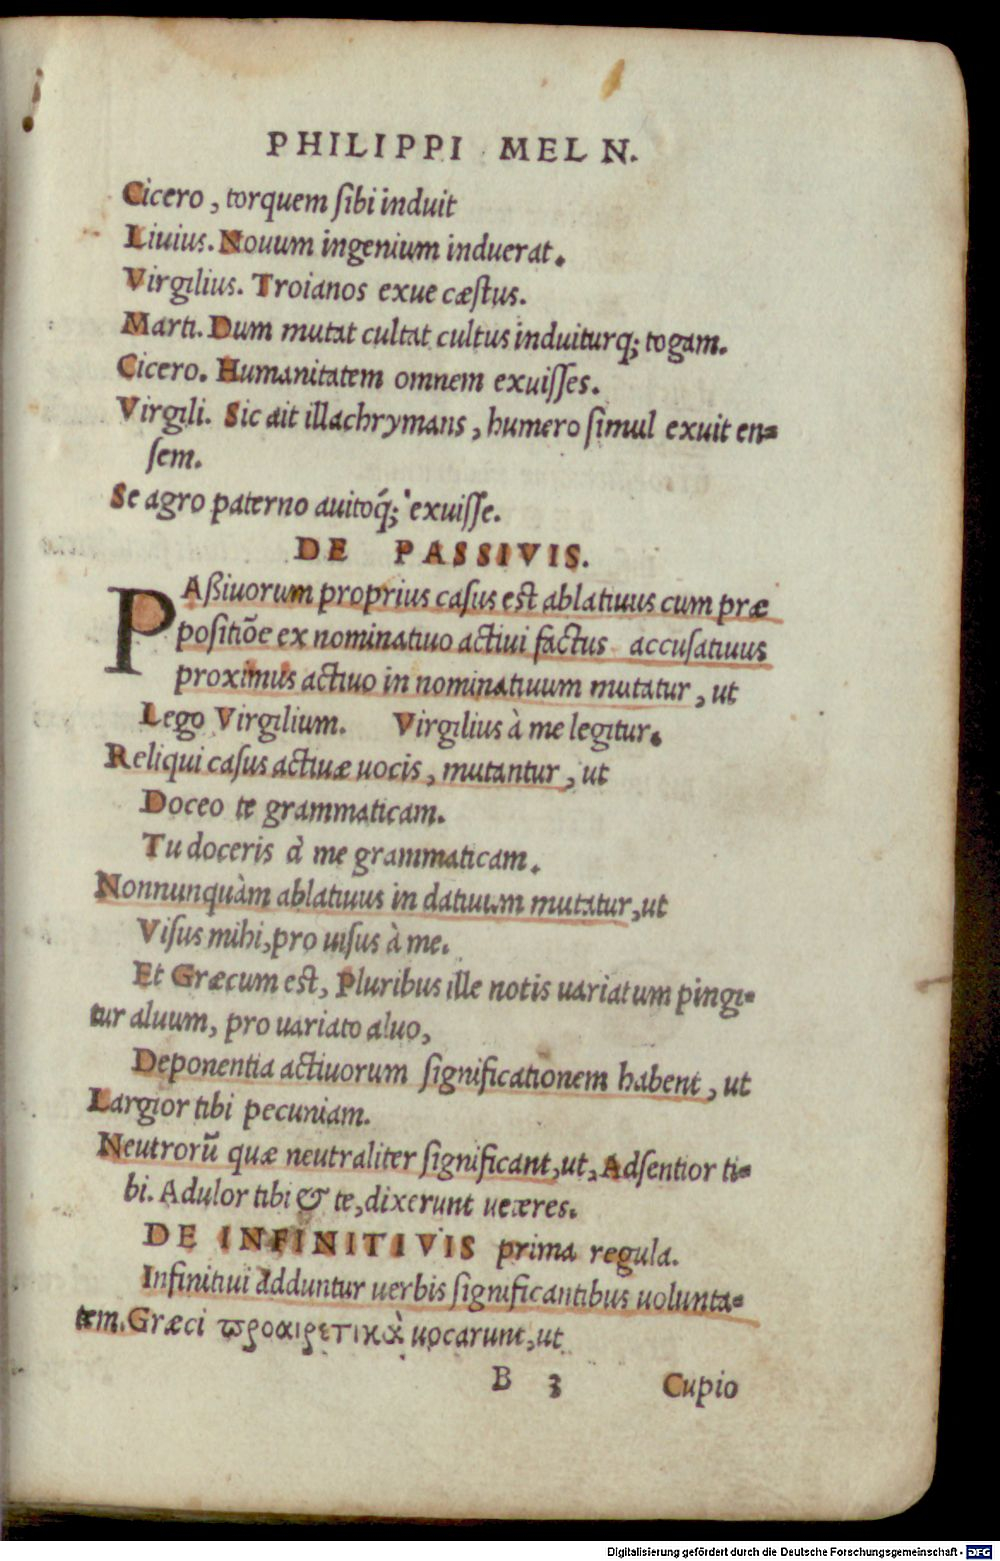 PHILIPPI MELN.
Cicero, torquem ſibi induit
Liuius. Nouum ingenium induerat.
Virgilius. Troianos exue cæſtus.
Marti. Dum mutat cultat cultus induiturq; togam.
Cicero. Humanitatem omnem exuiſſes.
Virgili. Sic ait illachrymans, humero ſimul exuit en=
ſem.
Se agro paterno auitoq́; exuiſſe.
DE PASSIVIS.
PAßiuorum proprius caſus eſt ablatiuus cum præ
poſitiõe ex nominatiuo actiui factus accuſatiuus
proximus actiuo in nominatiuum mutatur, ut
Lego Virgilium. Virgilius à me legitur.
Reliqui caſus actiuæ uocis, mutantur, ut
Doceo te grammaticam.
Tu doceris à me grammaticam.
Nonnunquàm ablatiuus in datiuum mutatur, ut
Viſus mihi, pro uiſus à me.
Et Græcum eſt, Pluribus ille notis uariatum pingi=
tur aluum, pro uariato aluo,
Deponentia actiuorum ſignificationem habent, ut
Largior tibi pecuniam.
Neutrorũ quæ neutraliter ſignificant, ut, Adſentior ti=
bi. Adulor tibi & te, dixerunt ueteres.
DE INFINITIVIS prima regula.
Infinitiui adduntur uerbis ſignificantibus uolunta=
tem. Græci ϖροαιρετικὰ uocarunt, ut
B 3 Cupio
Digitalisierung gefördert durch die Deutsche Forschungsgemeinschaft - DFG